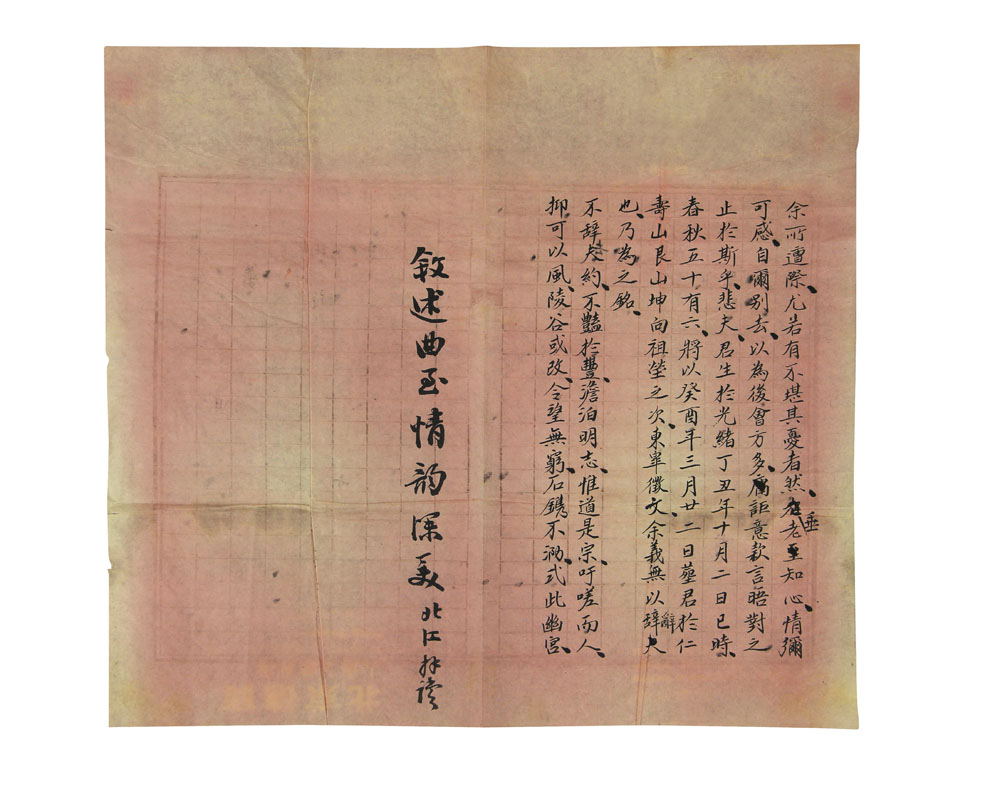 余所遭際尤若有不堪其憂者然垂老至知心情彌
可感自爾別去以為後會方多詎意款言晤對之
止於斯乎悲夫君生於光緒丁丑年十月二日巳時
春秋五十有六將以癸酉年三月廿二日塟君於仁
壽山艮山坤向祖塋之次東辠徵文余義無以辭
也乃為之銘
不辭於約不豔於豐澹泊明志惟道是宗吁嗟而人
抑可以風陵谷或改令望無窮石鐫不泐式此幽宮
敘述曲至情韵深美北江拜讀